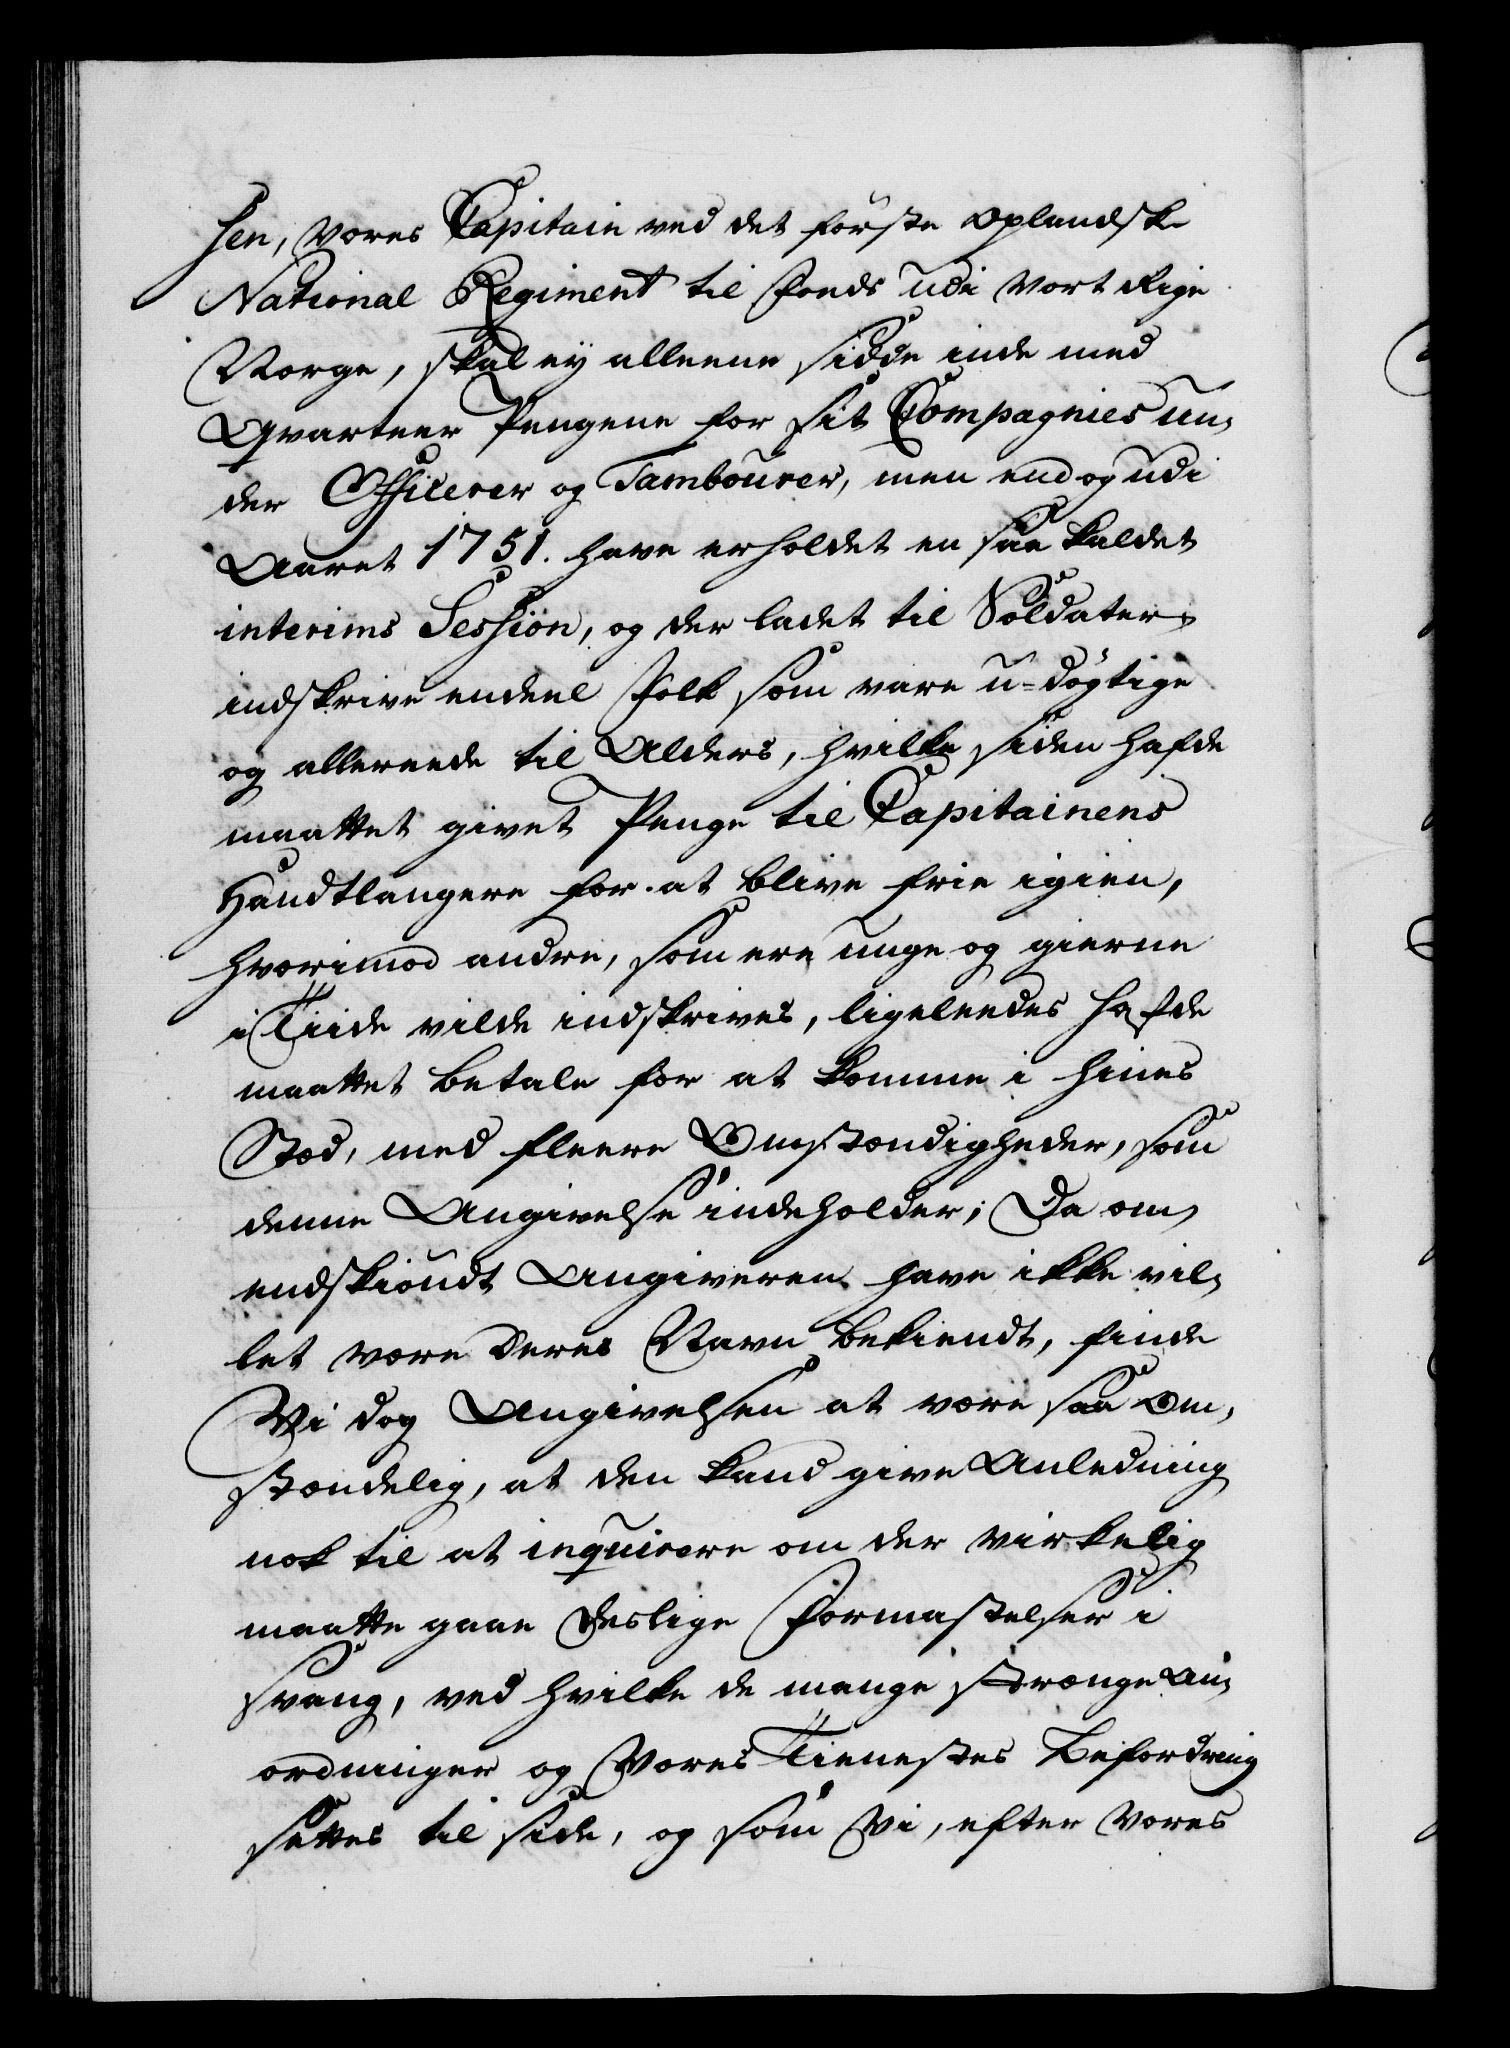 sen, Vores Capitain ved det første Oplandske
National Regiment til Fords udi Vort Rige
Norge, skal ey alleene sidde inde med
Qvarteer Pengene for sit Compagnies Un-
der Officerer og Tambourer, men end og udi
Aaret 1751. have erholdet en saa kaldet
interims Session, og der ladet til Soldater
indskrive endeel Folk som vare u-døgtige
og allereede til Alders, hvilke siden hafde
maattet givet Penge til Capitainens
Handtlangere for at blive frie igien,
hvorimod andre, som ere unge og gierne
i Tiide vilde indskrives, ligeleedes hafde
maattet betale for at komme i hines
Stæd, med fleere Omstændigheder, som
denne Angivelse indeholder; Da om
endskiøndt Angiveren have ikke vil-
let være deres Navn bekiendt, finde
Vi dog Angivelsen at være saa Om-
stændelig, at den kand give Anledning
nok til at inqvirere om der virkelig
maatte gaae deslige Formastelser i
svang, ved hvilke de mange strænge An-
ordninger og Vores Tienestes Befordring
sættes til side, og som Vi, efter Vores